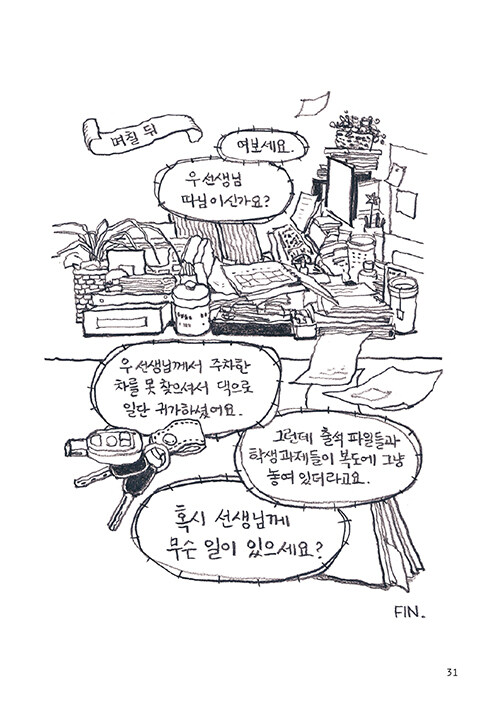 며칠 뒤
여보세요.
우선생님
따님이신가요?
우선생님께서 주차한
차를 못 찾으셔서 댁으로
일단 귀가하셨어요.
그런데 출석 파일들과
학생과제들이 복도에 그냥
놓여 있더라고요.
혹시 선생님께
무슨 일이 있으세요?
FIN.
31